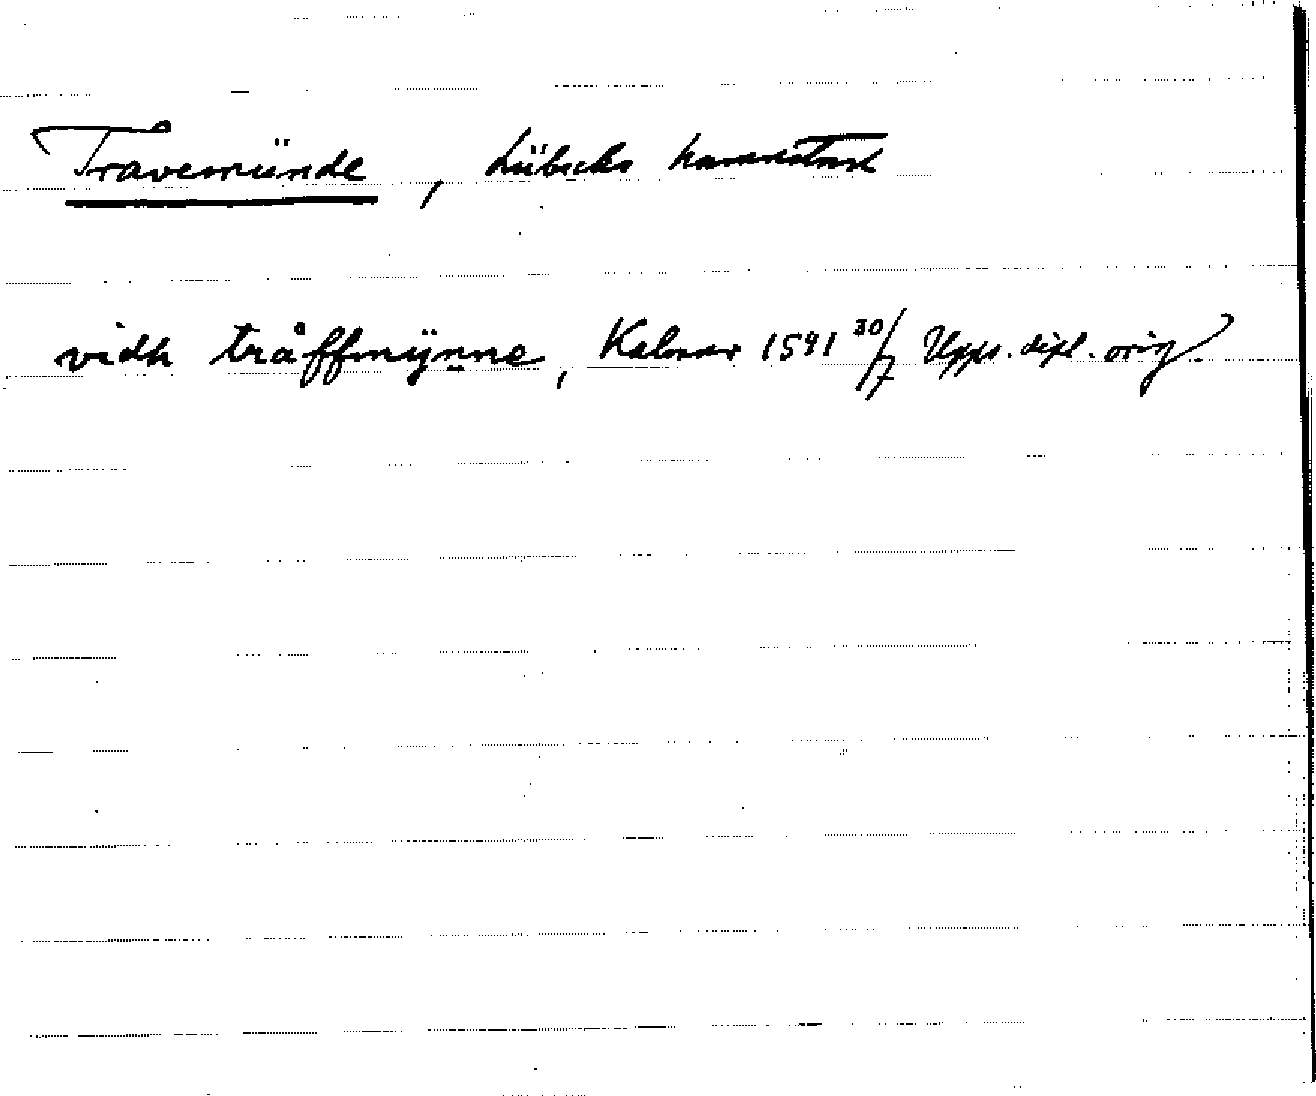 Travemünde, Lübecks hamnstad
vidh tråffmÿnne, Kalmar 1591 30/7 Upps. dipl. orig